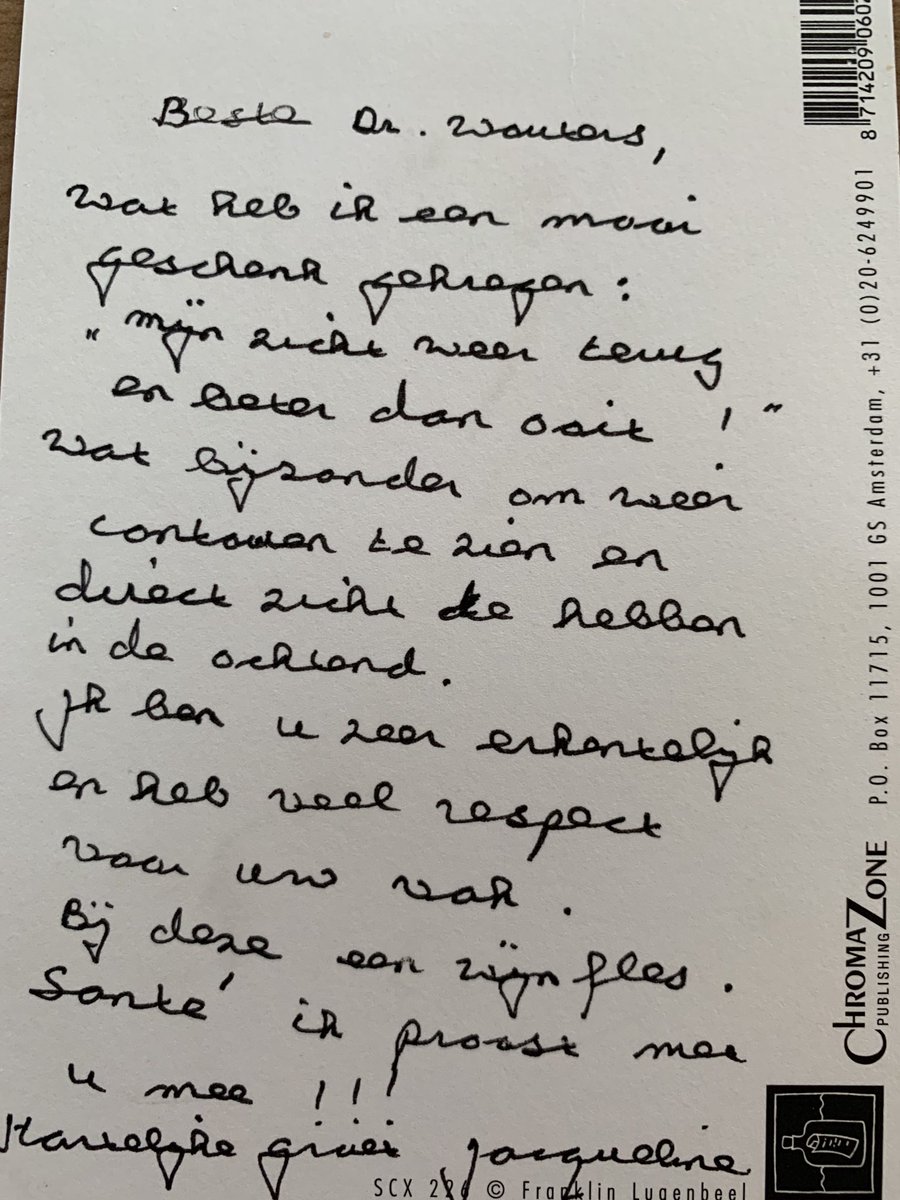 Beste Dr. Wouters,
wat heb ik een mooi
geschenk gekregen:
"mijn zicht weer terug
en beter dan ooit!"
wat bijzonder om weer
contouren te zien en
direct zicht te hebben
in de ochtend.
Ik ben u zeer erkentelijk
en heb veel respect
voor uw vak.
Bij deze een wijn fles.
Santé ik proost met
u mee !!!
Hartelijke groet Jacqueline
SCX 226 © Franklin Lugenbeel
CHROMAZONE
PUBLISHING
P.O. Box 11715, 1001 GS Amsterdam, +31 (0)20-6249901
8 714209 0602